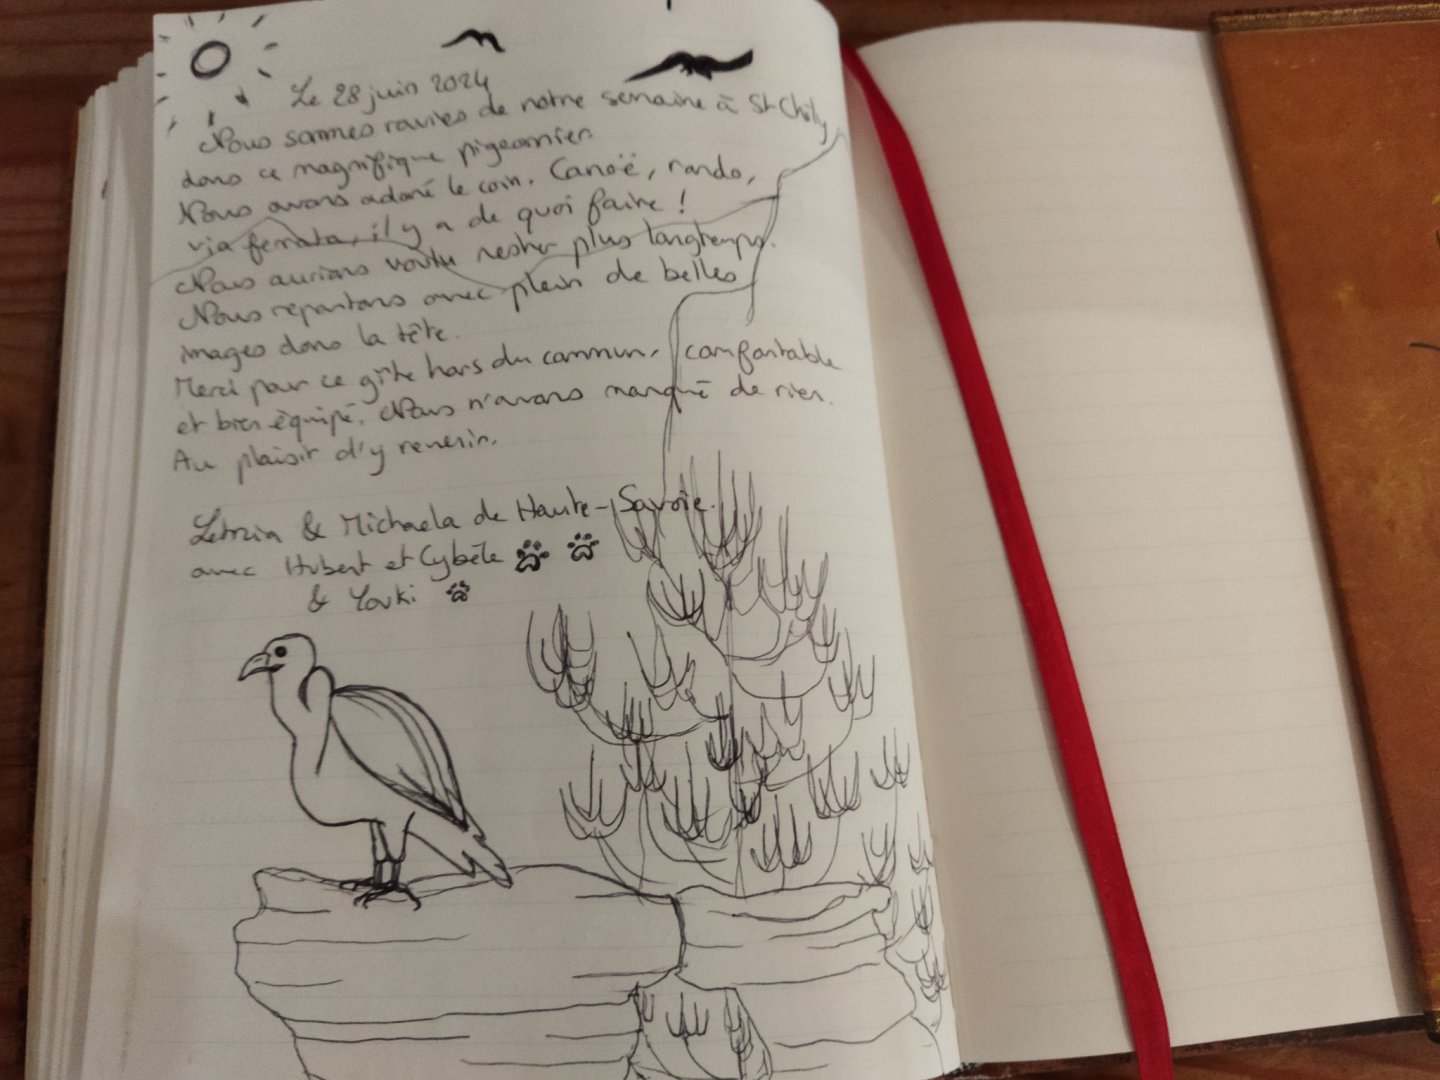 Le 28 juin 2024
Nous sommes ravies de notre semaine à St Chély
dans ce magnifique pigeonnier
Nous avons adoré le coin. Canoë, rando,
via ferrata, il y a de quoi faire !
Nous aurions voulu rester plus longtemps.
Nous repartons avec plein de belles
images dans la tête.
Merci pour ce gîte hors du commun, comfortable
et bien équipé. Nous n'avons manqué de rien.
Au plaisir d'y revenir.
& Michaela de Haute-Savoie.
avec Hubert et Cybèle
& Youki